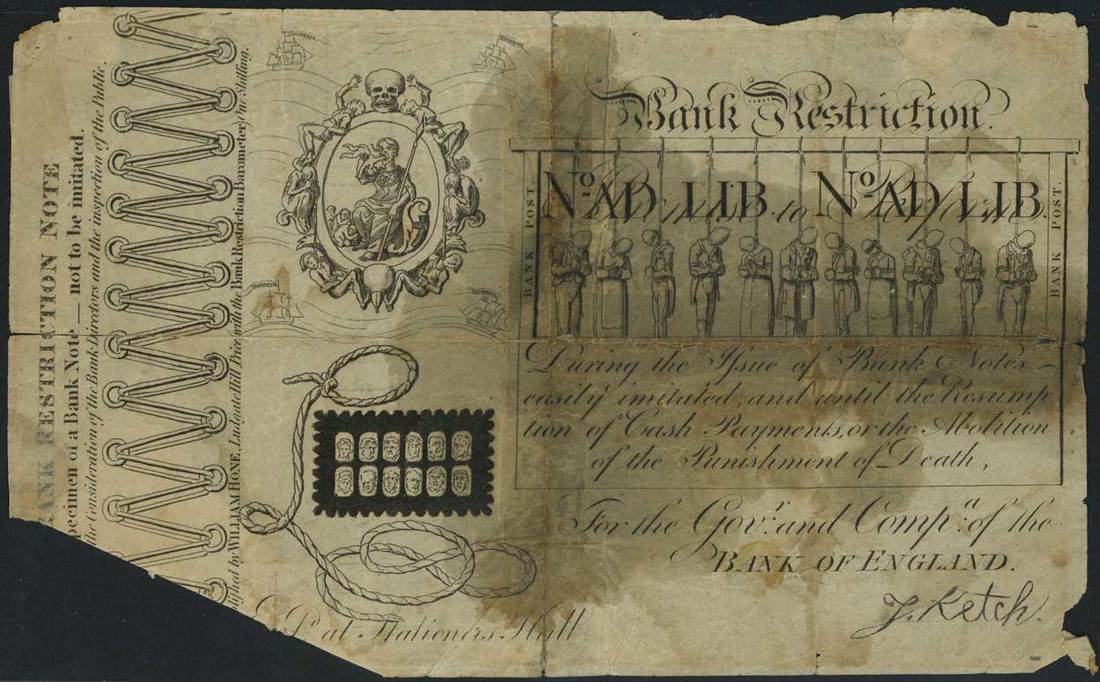 BANK RESTRICTION NOTE
pecimen of a Bank Note — not to be imitated.
the Consideration of the Bank Directors and the inspection of the Public.
lished by WILLIAM HONE, Ludgate Hill Price, with the Bank Restriction Barometer, One Shilling.
Bank Restriction.
No. AD LIB. No. AD LIB.
to Perform
BANK POST.
BANK POST.
During the Issue of Bank Notes
easily imitated, and until the Resump
tion of Cash Payments, or the Abolition
of the Punishment of Death,
For the Govr. and Compa. of the
BANK OF ENGLAND.
J. Ketch.
at Stationers Hall